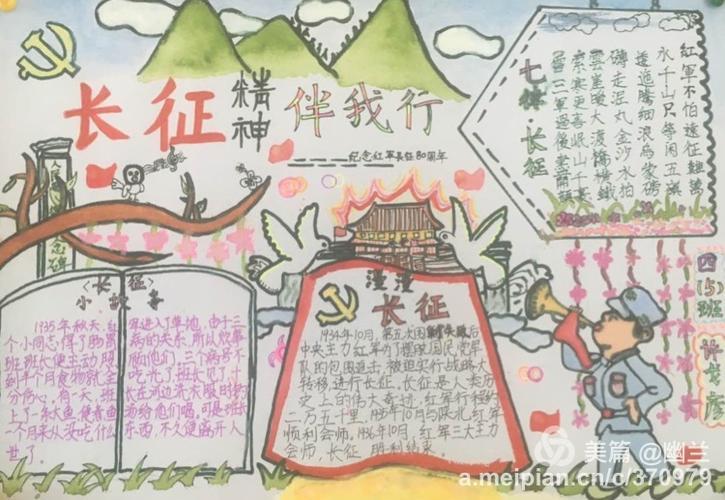 长征精神伴我行
纪念红军长征80周年
七律·长征
紅軍不怕遠征難萬
水千山只等閑五嶺
逶迤騰細浪烏蒙磅
礴走泥丸金沙水拍
雲崖暖大渡橋橫鐵
索寒更喜岷山千里
雪三軍過後盡開顏
念碑
《长征》
小故事
1935年秋天,红军进入了草地,由于三
个小同志得了肠胃病的关系,所以炊事
班班长便主动照顾他们,三个病号不
到半个月食物就全吃光了,班长见了十
分伤心。有一天,班长在河边洗衣服时钓
上了一条大鱼,便煮鱼汤给他们喝,可是班长
个月来从没吃什么东西,不久便离开人
世了。
漫漫
长征
1934年10月,第五次围剿失败后
中央主力红军为了摆脱国民党军
队的包围追击,被迫实行战略大
转移,进行长征。长征是人类历
史上的伟大奇迹,红军行程约
二万五千里,1935年10月与陕北红军
顺利会师,1936年10月,红军三大主力
会师,长征胜利结束。
四(5)班
美篇 @幽兰
a.meipian.cn/c/370979